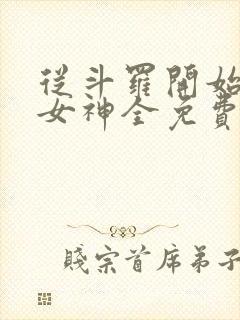 從斗羅開始
女神全免費
賤宗首席弟子